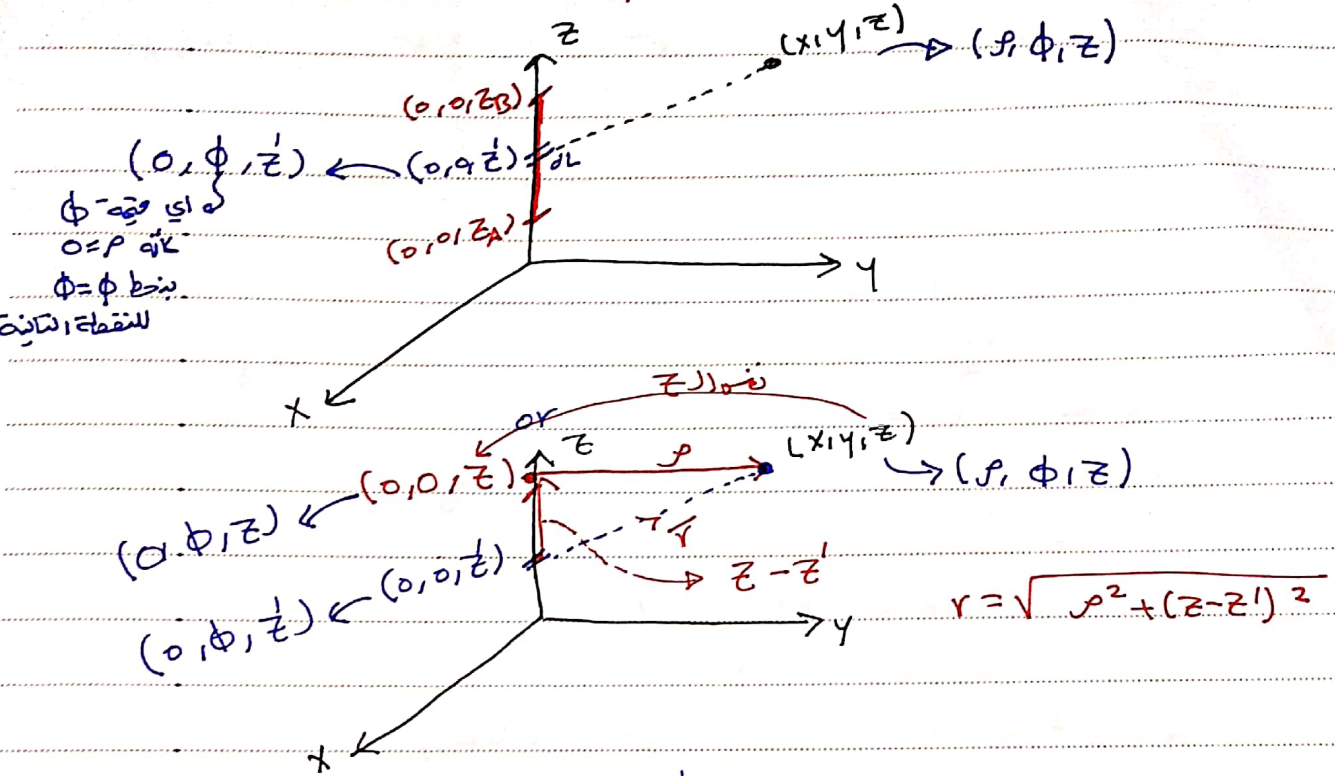 Z
(x,y,z) → (ρ, φ, z)
(0,0,z_B)
(0, φ, z') ← (0,0,z') dL
اي قيمة φ
لأنه ρ=0
بنحط φ=φ
للنقطة الثانية
(0,0,z_A)
y
x
or
z
(x,y,z) → (ρ, φ, z)
(0,φ,z) ← (0,0,z) ρ
r
(0,φ,z') ← (0,0,z') z-z'
r = √ρ²+(z-z')²
y
x